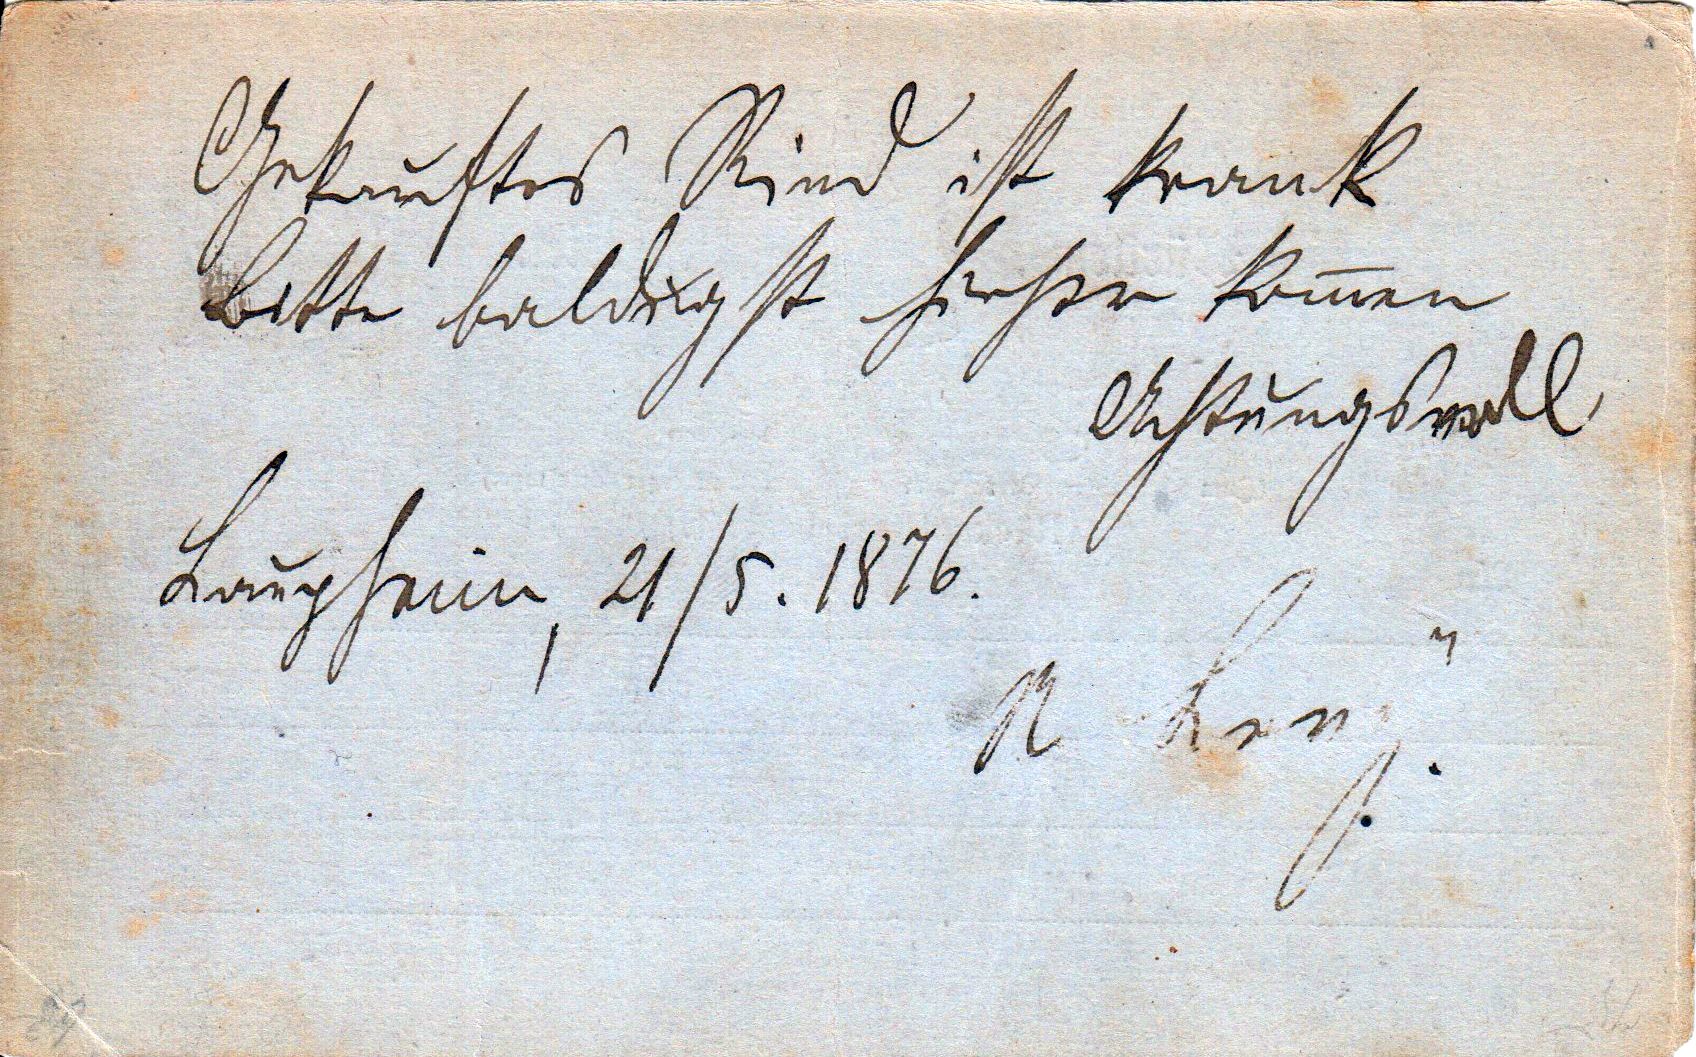 Gekauftes Rind ist krank
Bitte baldigst hierher kom̅en
Achtungsvoll
Laupheim, 21/5. 1876.